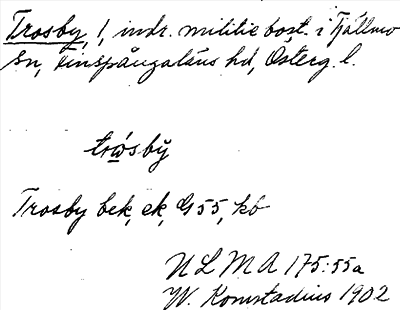 Trosby, 1, indr. militiebost. i Tjällmo
sn, Finspångaläns hd, Österg. l.
trὼsby̆
Trosby bek, ek, G 55, kb
NLMA 175:55a
W. Komstadius 1902